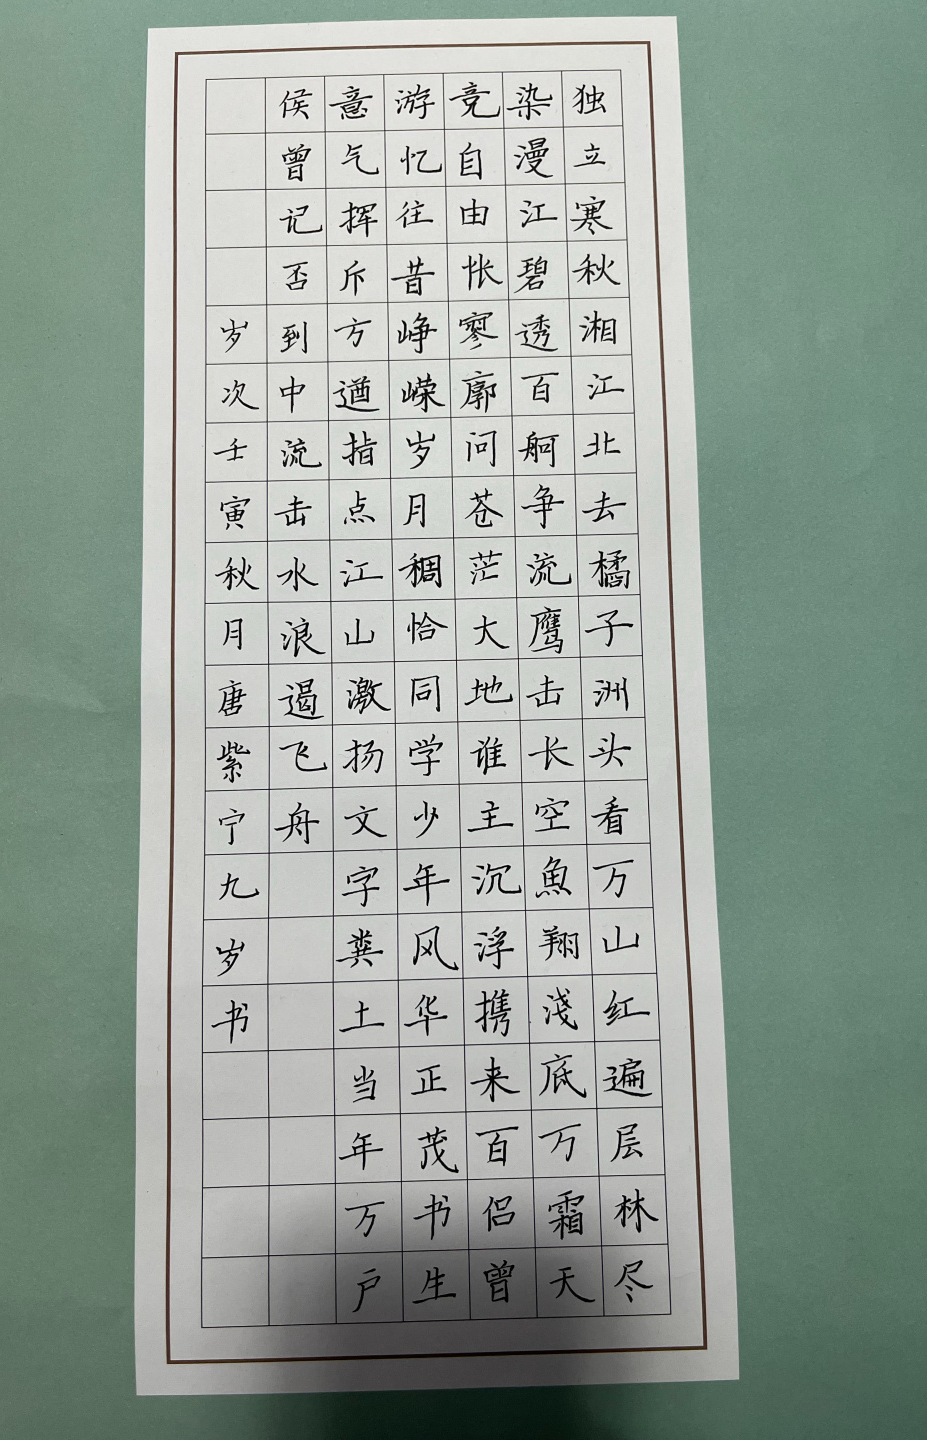 独立寒秋湘江北去橘子洲头看万山红遍层林尽
染漫江碧透百舸争流鹰击长空魚翔淺底万霜天
竞自由怅寥廓问苍茫大地谁主沉浮携来百侣曾
游忆往昔峥嵘岁月稠恰同学少年风华正茂书生
意气挥斥方遒指点江山激扬文字粪土当年万户
侯曾记否到中流击水浪遏飞舟
岁次壬寅秋月唐紫宁九岁书